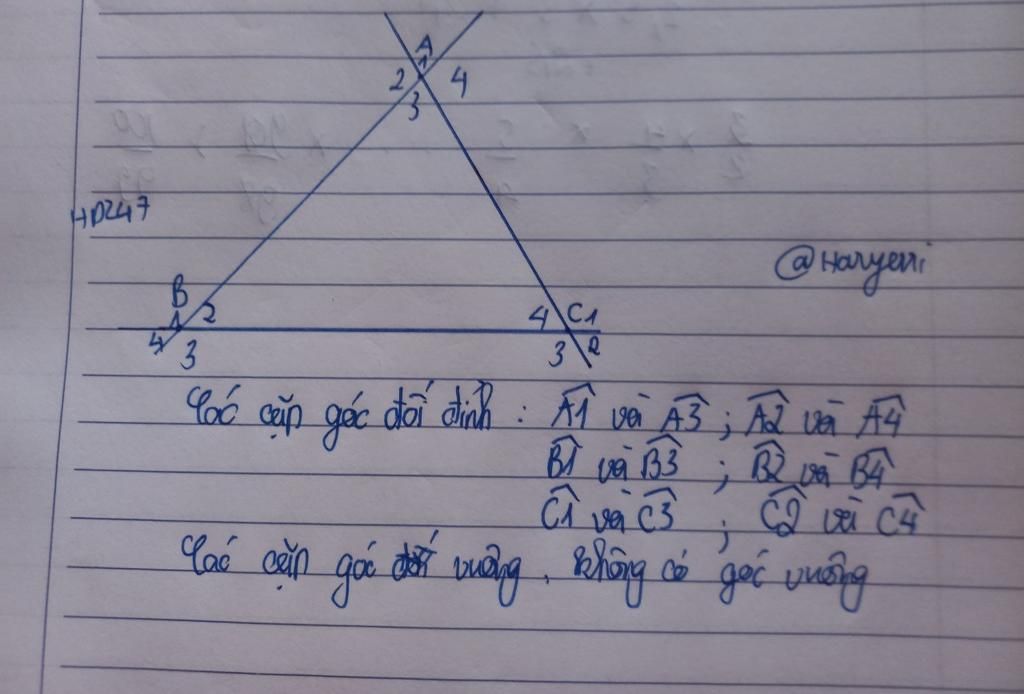 A
1
2
4
3
HD247
@Haryeni
B
1
2
4
3
4
C1
3
2
Các cặp góc đối đỉnh : A1 và A3 ; A2 và A4
B1 và B3 ; B2 và B4
C1 và C3 ; C2 và C4
Các cặp góc vuông. Không có góc vuông